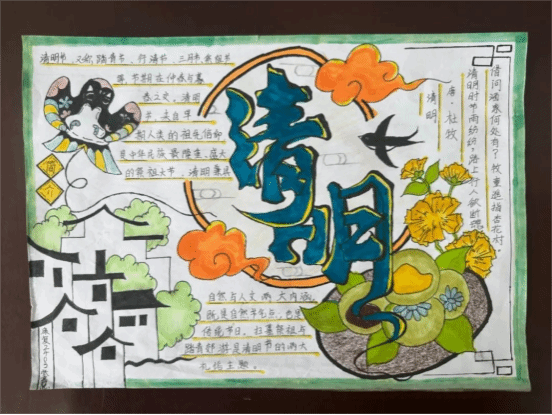 清明节，又称踏青节、行清节、三月节、祭祖节
等，节期在仲春与暮
春之交。清明
节，源自早
期人类的祖先信仰
是中华民族最隆重、盛大
的祭祖大节，清明兼具
简介
自然与人文两大内涵，
既是自然节气点，也是
传统节日，扫墓祭祖与
踏青郊游是清明节的两大
礼俗主题。
清明
清明
唐·杜牧
清明时节雨纷纷，路上行人欲断魂
借问酒家何处有？牧童遥指杏花村。